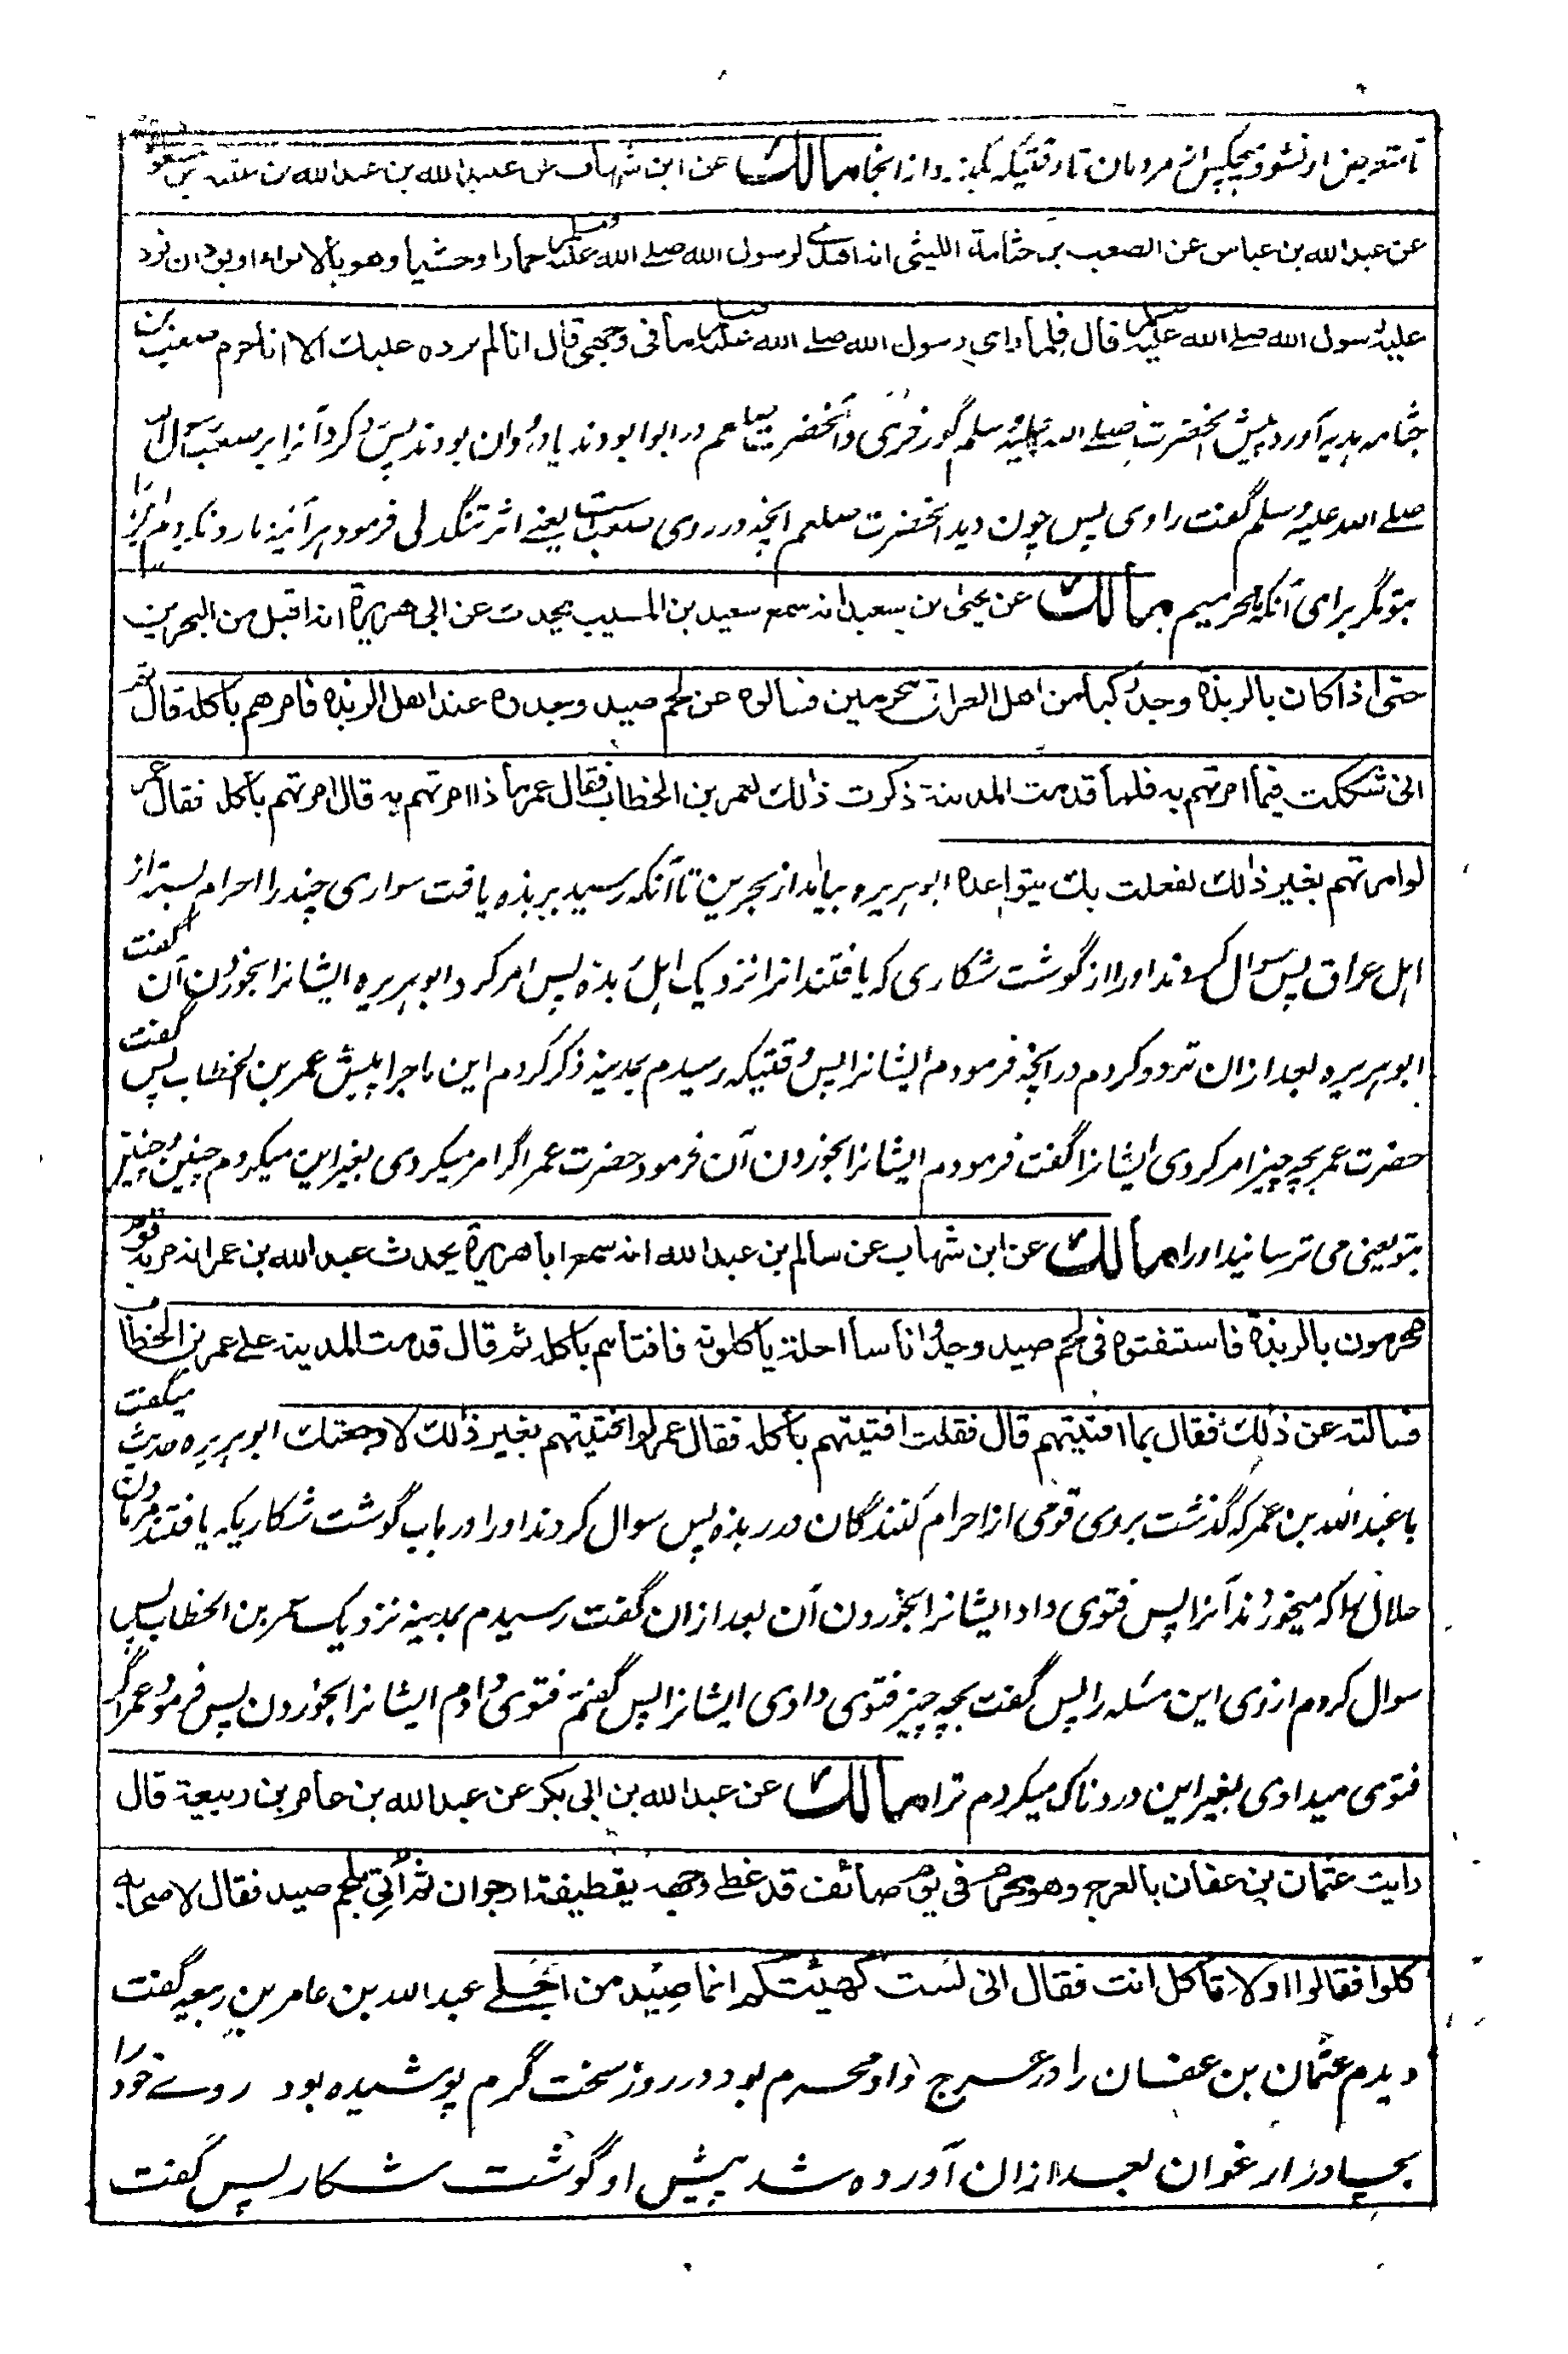 تا متعرض او نشود هیچکس از مردمان تا وقتیکه بگذرد از انجا مالك عن ابن شهاب عن عبيد الله بن عبد الله بن عتبة بن مسعود
عن عبد الله بن عباس عن الصعب بن جثامة الليثي انه اهدى لرسول الله صلے الله عليه وسلم حمارا وحشيا وهو بالابواء او بودان فرد
عليه رسول الله صلے الله عليه وسلم قال فلما رای رسول الله صلے الله عليه وسلم ما في وجهي قال انا لم نرده عليك الا انا حرم صعب بن
جثامه هدیه آورد پیش آنحضرت صلے الله علیه وسلم گورخری و آنحضرت صلعم در ابوا بودند یا در ودان بودند پس رد کرد آنرا بر صعب رسول الله
صلے الله علیه وسلم گفت راوی پس چون دید آنحضرت صلعم آنچه در روی صعب است یعنے اثر تنگدلی فرمود هرآئینه ما رد نکردیم این را
بتو مگر برای آنکه ما محرمیم مالك عن يحيى بن سعيد انه سمع سعيد بن المسيب يحدث عن ابي هريرة انه اقبل من البحرين
حتى اذا كان بالربذة وجد ركبا من اهل العراق محرمين فسالوه عن لحم صيد وجدوه عند اهل الربذة فامرهم باكله قال ثم
اني شككت فيما امرتهم به فلما قدمت المدينة ذكرت ذلك لعمر بن الخطاب فقال عمر ما ذا امرتهم به قال امرتهم باكله فقال عمر
لو امرتهم بغير ذلك لفعلت بك يتواعده ابوهریره بیامد از بحرین تا آنکه رسید بربذه یافت سواری چند را احرام بسته از
اهل عراق پس سوال کردند او را از گوشت شکاری که یافتند انرا نزدیک اهل ربذه پس امر کرد ابوهریره ایشانرا بخوردن آن گفت
ابوهریره بعد ازان تردد کردم در آنچه فرمودم ایشانرا پس وقتیکه رسیدم بمدینه ذکر کردم این ماجرا پیش عمر بن الخطاب پس گفت
حضرت عمر بچه چیز امر کردی ایشانرا گفت فرمودم ایشانرا بخوردن آن فرمود حضرت عمر اگر امر میکردی بغیر این میکردم چنین و چنین
بتو یعنی می ترسانید او را مالك عن ابن شهاب عن سالم بن عبد الله انه سمع ابا هريرة يحدث عبد الله بن عمر انه مر به قوم
محرمون بالربذة فاستفتوه في لحم صيد وجدوا ناسا احلة ياكلونه فافتاهم باكله ثم قال قدمت المدينة على عمر بن الخطاب
فسالته عن ذلك فقال بما افتيتهم قال فقلت افتيتهم باكله فقال عمر لو افتيتهم بغير ذلك لاوجعتك ابوهریره حدیث میگفت
با عبد الله بن عمر که گذشت بروی قومی از احرام کنندگان در ربذه پس سوال کردند او را در باب گوشت شکاریکه یافتند مردمان
حلال را که میخوردند آنرا پس فتوی داد ایشانرا بخوردن آن بعد ازان گفت رسیدم بمدینه نزدیک عمر بن الخطاب پس
سوال کردم ازوی این مسئله را پس گفت بچه چیز فتوی دادی ایشانرا پس گفتم فتوی دادم ایشانرا بخوردن پس فرمود عمر اگر
فتوی میدادی بغیر این دردناک میکردم ترا مالك عن عبد الله بن ابي بكر عن عبد الله بن عامر بن ربيعة قال
رايت عثمان بن عفان بالعرج وهو محرم في يوم صائف قد غطے وجهه بقطيفة ارجوان ثم أتي بلحم صيد فقال لاصحابه
كلوا فقالوا اولا تاكل انت فقال اني لست كهيئتكم انما صيد من اجلے عبد الله بن عامر بن ربیعه گفت
دیدم عثمان بن عفان را در عرج و او محرم بود در روز سخت گرم پوشیده بود روے خود را
بچادر ارغوان بعد ازان آورده شد پیش او گوشت شکار پس گفت